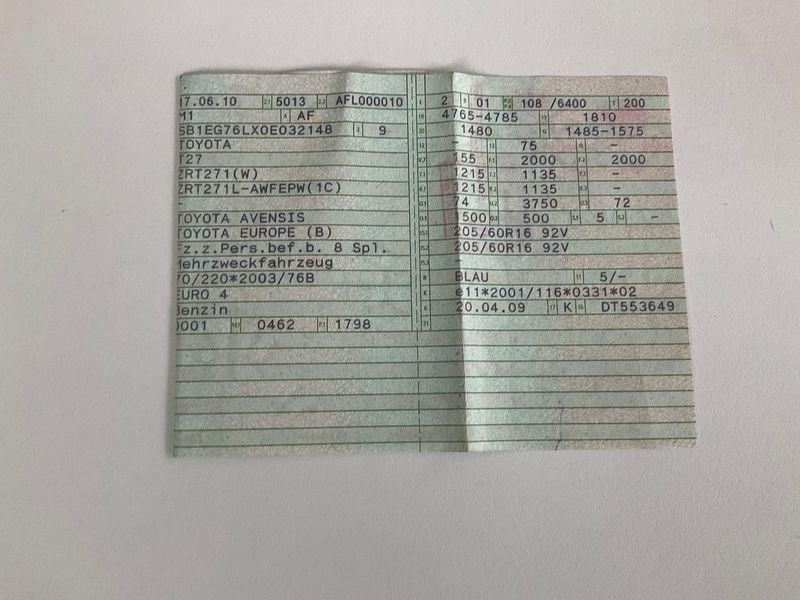 17.06.10 5013 AFL000010
M1 AF
SB1EG76LX0E032148 9
TOYOTA
T27
ZRT271(W)
ZRT271L-AWFEPW(1C)
-
TOYOTA AVENSIS
TOYOTA EUROPE (B)
Fz.z.Pers.bef.b. 8 Spl.
Mehrzweckfahrzeug
70/220*2003/76B
EURO 4
Benzin
0001 0462 1798
2 01 108 /6400 200
4765-4785 1810
1480 1485-1575
- 75 -
155 2000 2000
1215 1135 -
1215 1135 -
74 3750 72
500 500 5 -
205/60R16 92V
205/60R16 92V
-
BLAU 5/-
e11*2001/116*0331*02
20.04.09 K DT553649